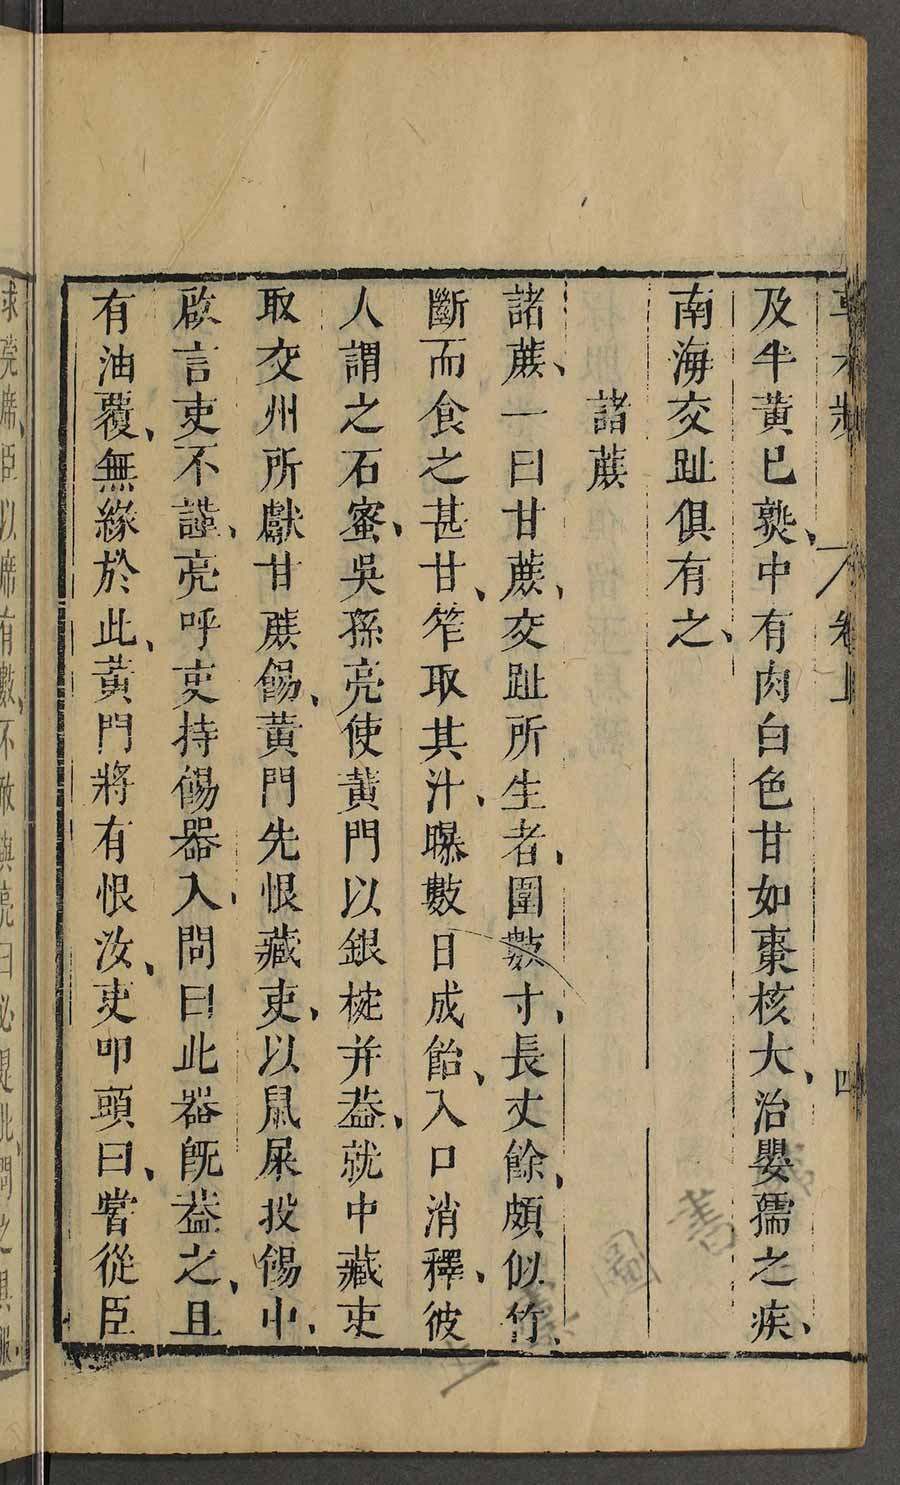 卷上
四
及半黃已熟、中有肉白色甘如棗核大、治嬰孺之疾、
南海交趾俱有之、
諸蔗
諸蔗、一曰甘蔗、交趾所生者、圍數寸、長丈餘、頗似竹、
斷而食之甚甘、笮取其汁、曝數日成飴、入口消釋、彼
人謂之石蜜、吳孫亮使黃門以銀椀并葢、就中藏吏
取交州所獻甘蔗餳、黃門先恨藏吏、以鼠屎投餳中、
啟言吏不謹、亮呼吏持餳器入、問曰此器既葢之、且
有油覆、無緣於此、黃門將有恨汝、吏叩頭曰、嘗從臣
求莞席、臣以席有數、不敢與、亮曰必是此、問之具服、